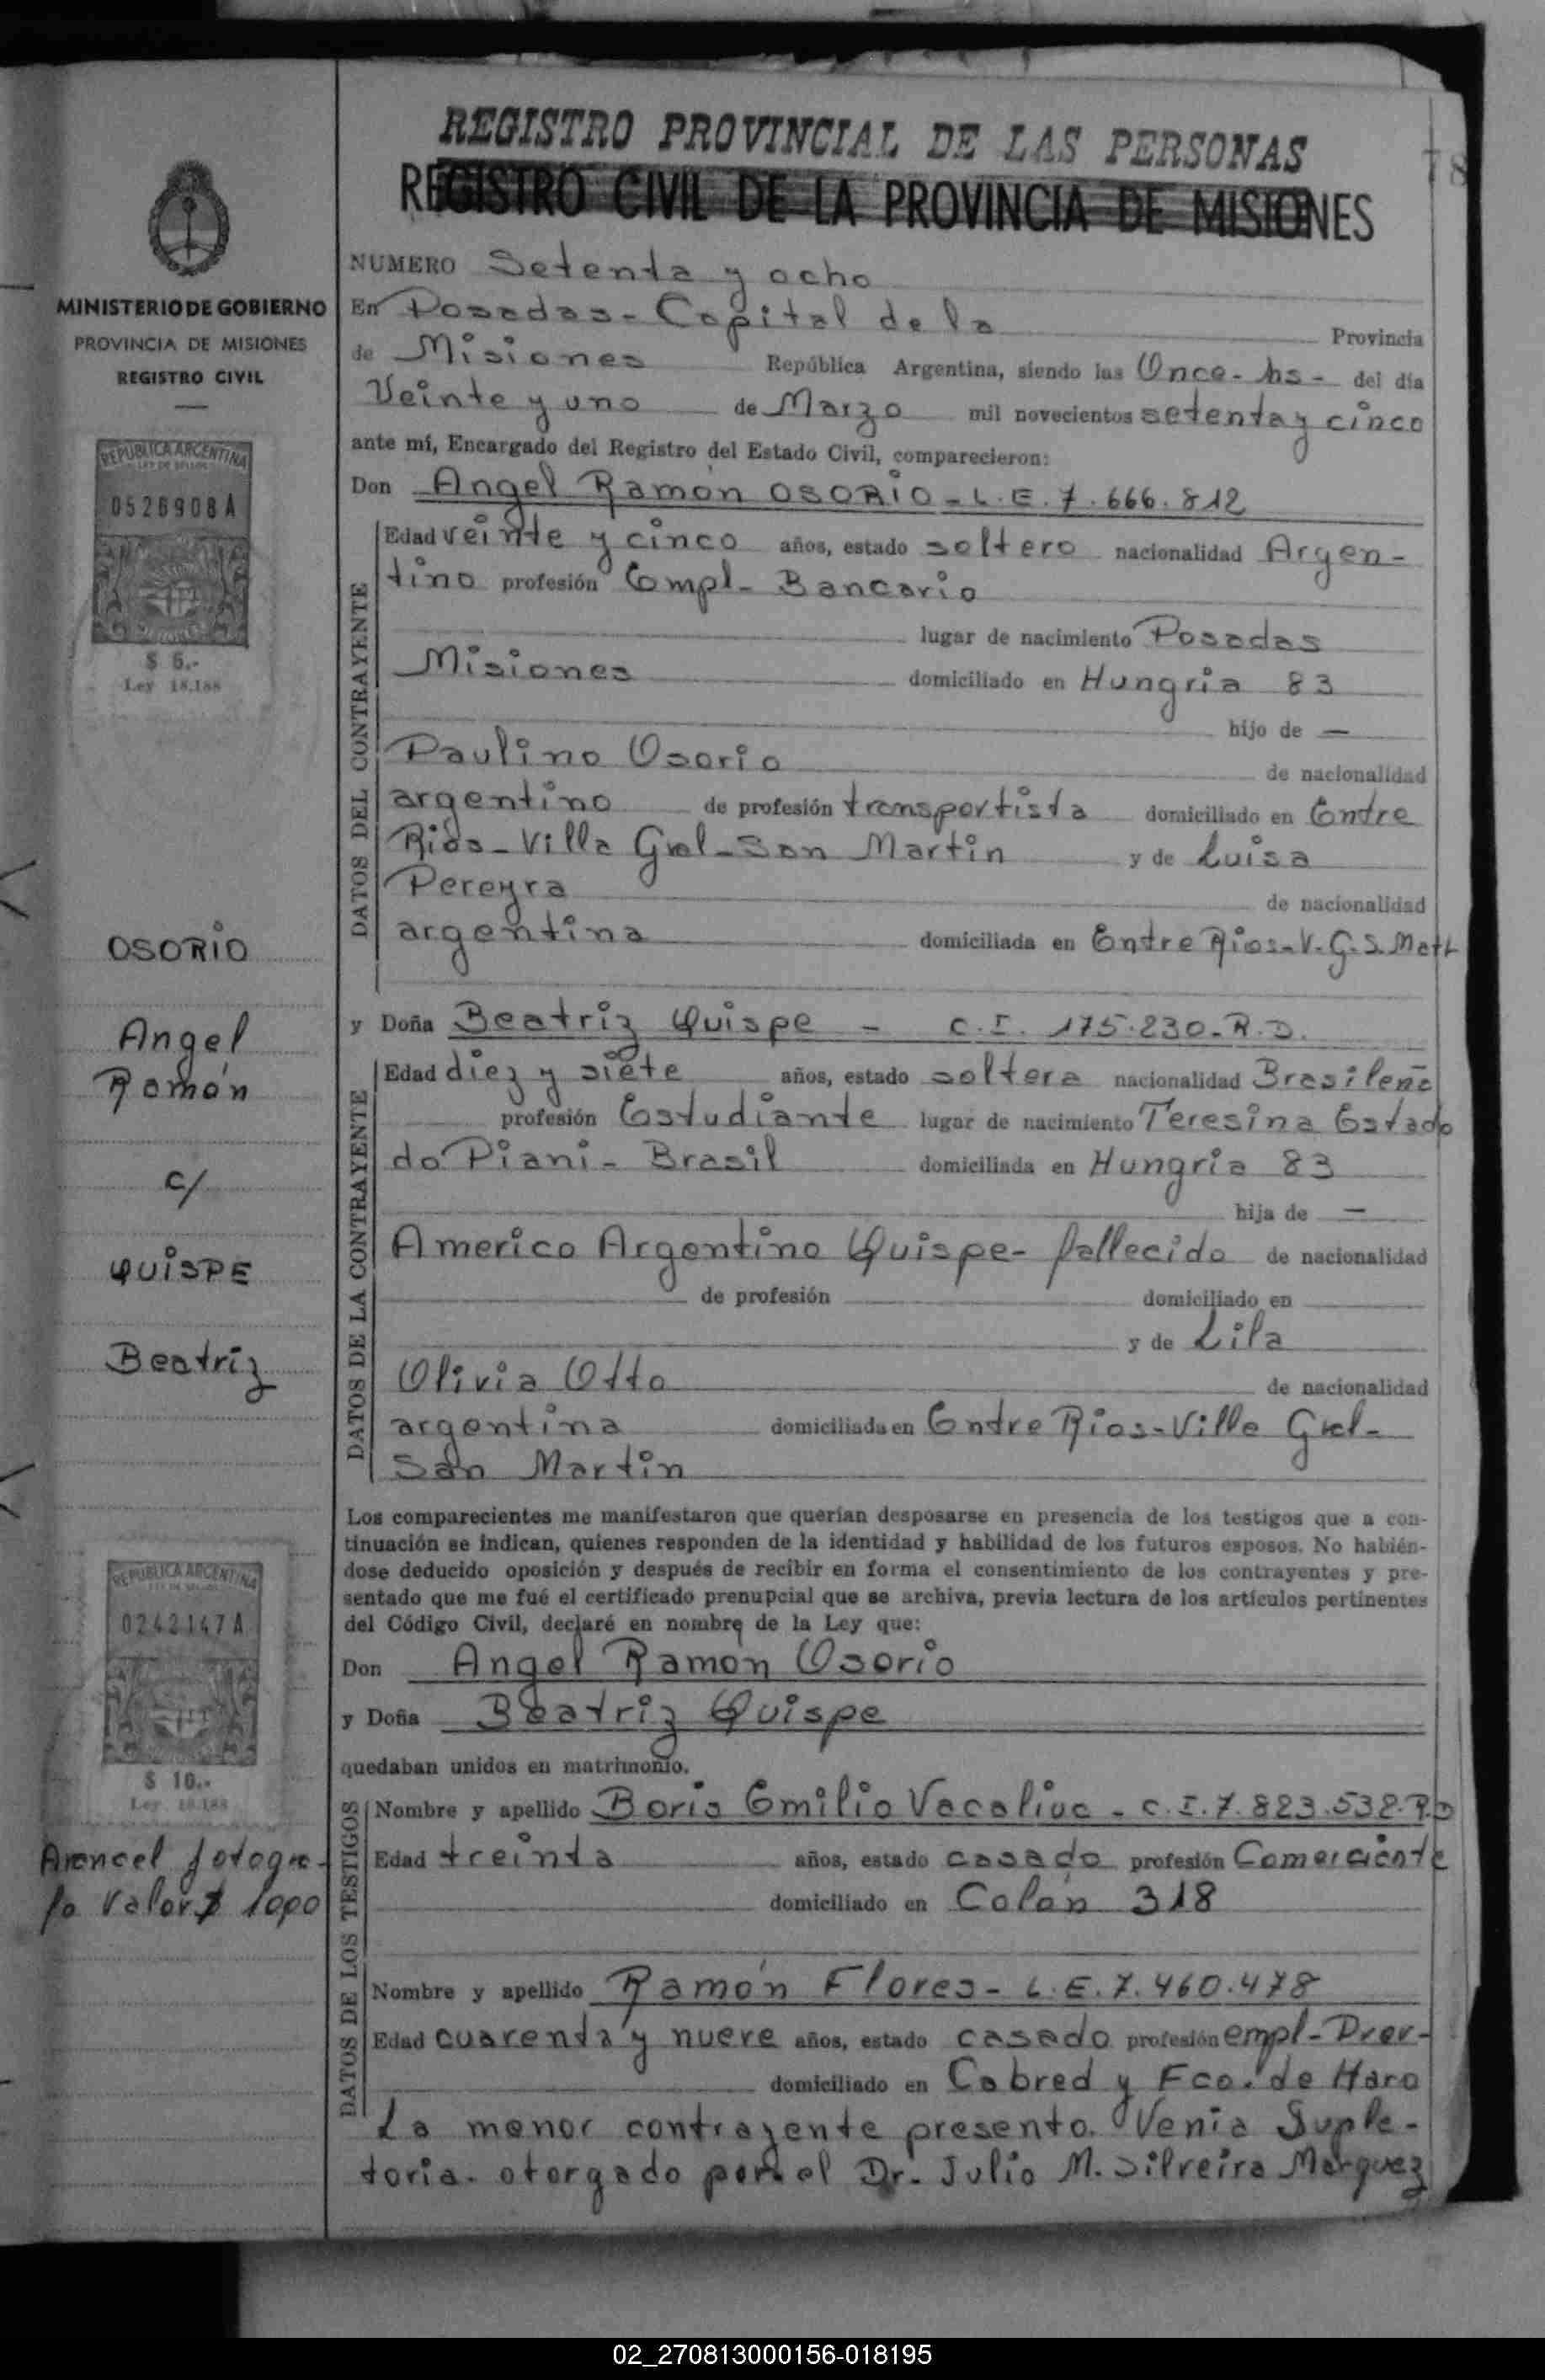 REGISTRO PROVINCIAL DE LAS PERSONAS
78
REGISTRO CIVIL DE LA PROVINCIA DE MISIONES
MINISTERIO DE GOBIERNO
PROVINCIA DE MISIONES
REGISTRO CIVIL
REPUBLICA ARGENTINA
LEY DE SELLOS
0526908A
$ 5.-
Ley 18.188
OSORIO
Angel
Ramón
c/
QUISPE
Beatriz
REPUBLICA ARGENTINA
LEY DE SELLOS
0242147A
$ 10.-
Ley 18.188
Arancel fotogra-
fo Valor $ 1000
NUMERO Setenta y ocho
En Posadas - Capital de la Provincia
de Misiones República Argentina, siendo las Once - hs - del día
Veinte y uno de Marzo mil novecientos setenta y cinco
ante mí, Encargado del Registro del Estado Civil, comparecieron:
Don Angel Ramon OSORIO - L.E. 7.666.812
DATOS DEL CONTRAYENTE
Edad veinte y cinco años, estado soltero nacionalidad Argen-
tino profesión Empl - Bancario
lugar de nacimiento Posadas
Misiones domiciliado en Hungria 83
hijo de —
Paulino Osorio de nacionalidad
argentino de profesión transportista domiciliado en Entre
Rios - Villa Gral - San Martin y de Luisa
Pereyra de nacionalidad
argentina domiciliada en Entre Rios - V. G. S. Mart
y Doña Beatriz Quispe - C.I. 175.230 - R.D.
DATOS DE LA CONTRAYENTE
Edad diez y siete años, estado soltera nacionalidad Brasileña
profesión Estudiante lugar de nacimiento Teresina Estado
do Piani - Brasil domiciliada en Hungria 83
hija de —
Americo Argentino Quispe - fallecido de nacionalidad
de profesión domiciliado en
y de Lila
Olivia Otto de nacionalidad
argentina domiciliada en Entre Rios - Villa Gral -
San Martin
Los comparecientes me manifestaron que querían desposarse en presencia de los testigos que a con-
tinuación se indican, quienes responden de la identidad y habilidad de los futuros esposos. No habién-
dose deducido oposición y después de recibir en forma el consentimiento de los contrayentes y pre-
sentado que me fué el certificado prenupcial que se archiva, previa lectura de los artículos pertinentes
del Código Civil, declaré en nombre de la Ley que:
Don Angel Ramon Osorio
y Doña Beatriz Quispe
quedaban unidos en matrimonio.
DATOS DE LOS TESTIGOS
Nombre y apellido Boris Emilio Vacaliuc - C.I. 7.823.532. R.D
Edad treinta años, estado casado profesión Comerciante
domiciliado en Colón 318
Nombre y apellido Ramón Flores - L.E. 7.460.478
Edad cuarenta y nueve años, estado casado profesión empl -
domiciliado en Cabred y Fco. de Haro
La menor contrayente presento. Venia Suple-
toria. otorgado por el Dr. Julio M. Silveira Marquez
02_270813000156-018195